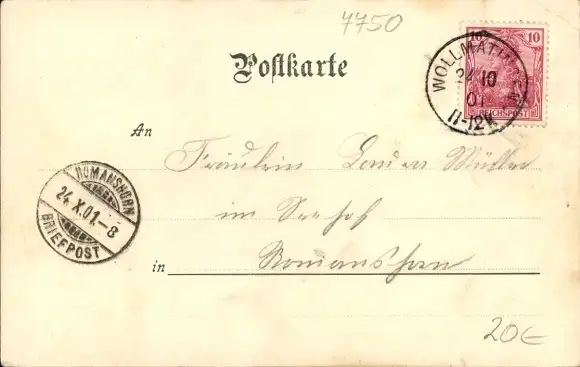 7750
Postkarte
10 10
REICHSPOST
WOLLMATINGEN
24 10
01
11-12V.
An
Fräulein Müller
im Seehof
in Romanshorn
ROMANSHORN
24.X.01.-8
BRIEFPOST
20€